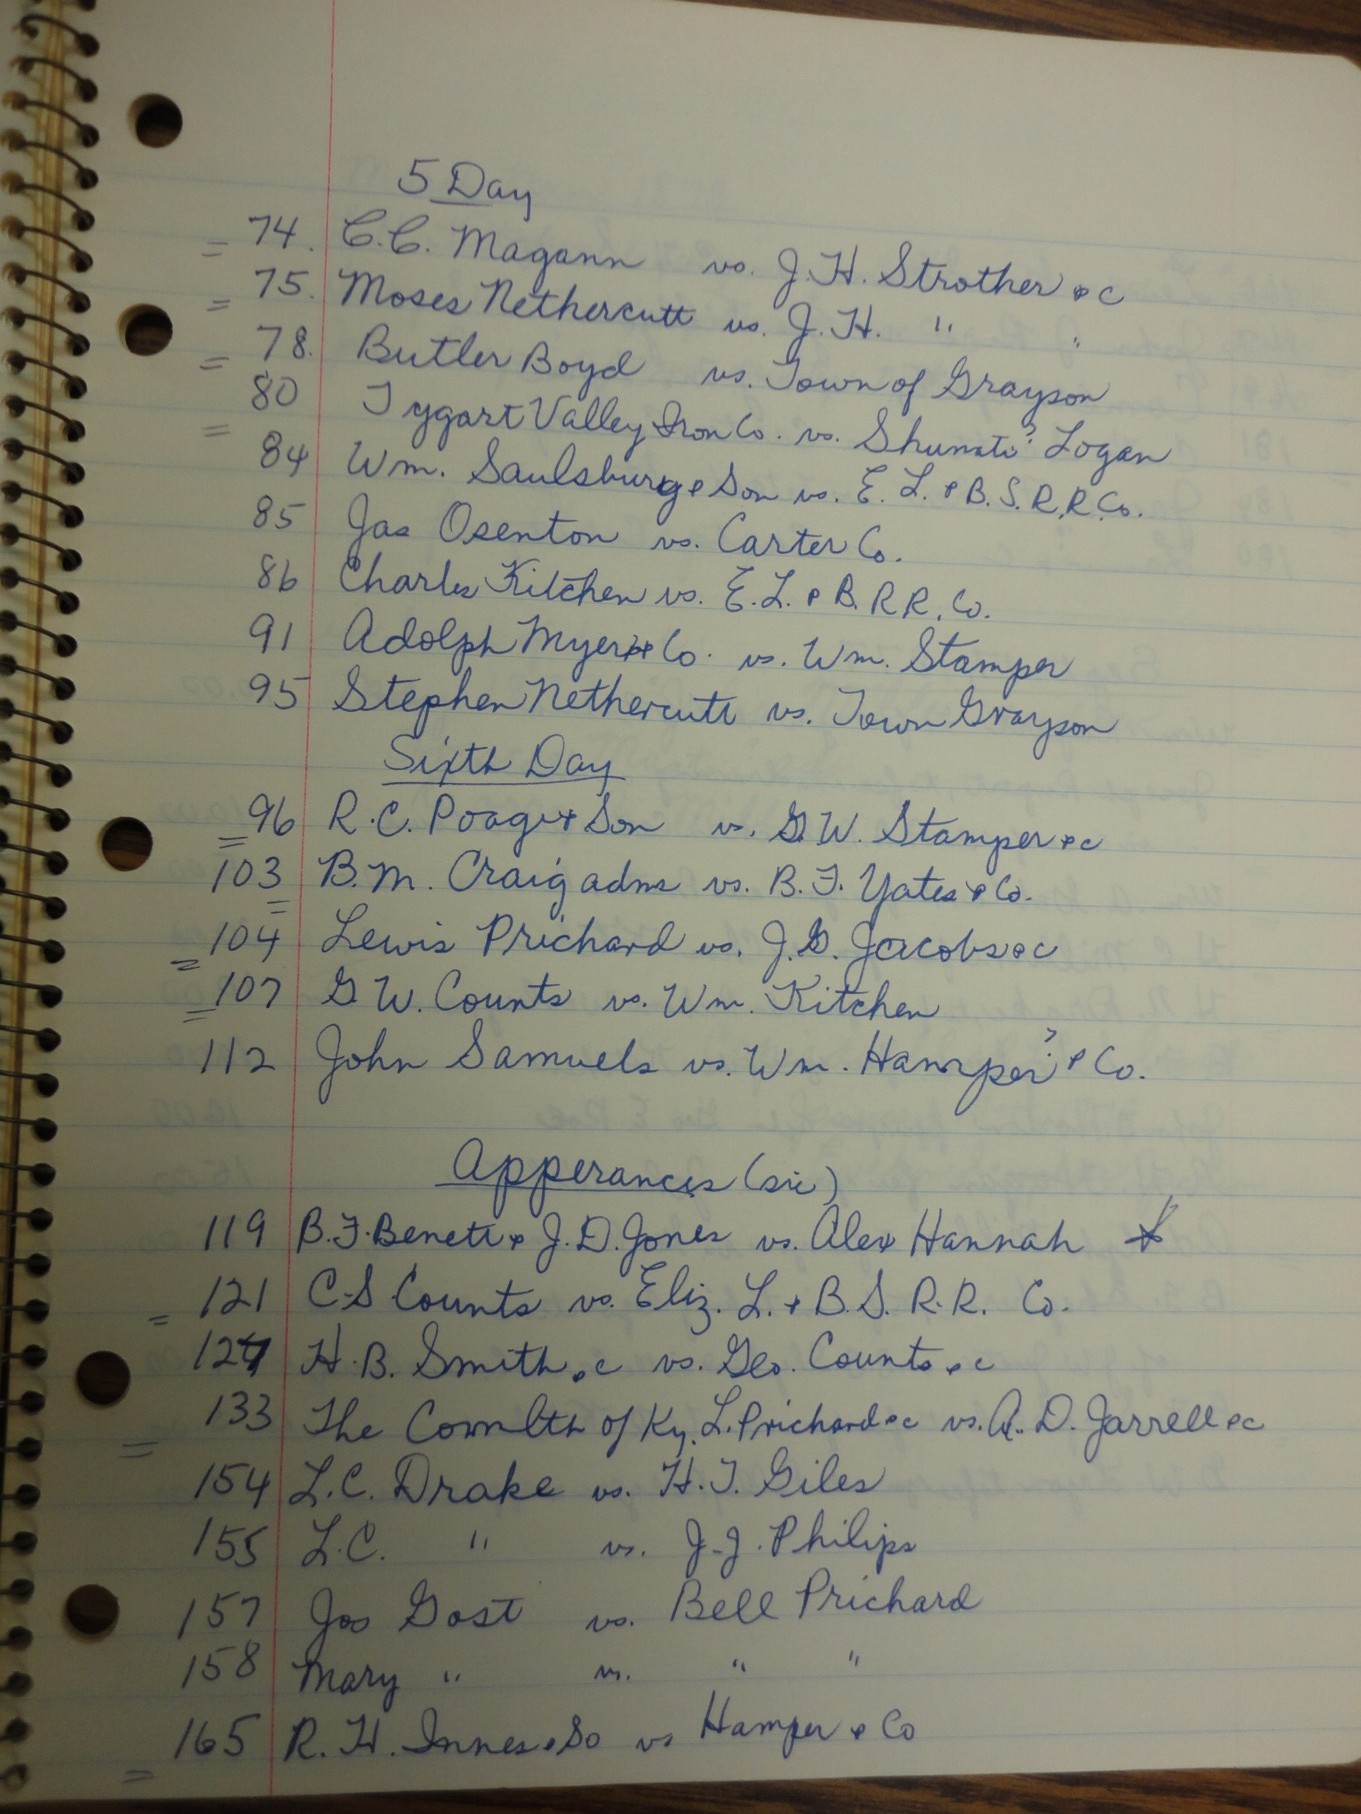 5 Day
= 74. C.C. Magann vs. J.H. Strother & c
= 75. Moses Nethercutt vs. J.H. " "
= 78. Butler Boyd vs. Town of Grayson
= 80 Tygart Valley Iron Co. vs. Shumate? Logan
84 Wm. Saulsburg & Son vs. E. L. & B. S. R.R. Co.
85 Jas Osenton vs. Carter Co.
86 Charles Kitchen vs. E.L. & B. R R. Co.
91 Adolph Myer & Co. vs. Wm. Stamper
95 Stephen Nethercutt vs. Town Grayson
Sixth Day
= 96 R.C. Poage & Son vs. G.W. Stamper & c
= 103 B.M. Craig adms vs. B.F. Yates & Co.
= 104 Lewis Prichard vs. J.G. Jacobs & c
= 107 G W. Counts vs. Wm. Kitchen
112 John Samuels vs. Wm. Hamper? & Co.
Apperances (sic)
119 B.F. Benett & J.D. Jones vs. Alex Hannah *
= 121 C.S Counts vs. Eliz. L. & B.S. R.R. Co.
127 H.B. Smith & c vs. Geo. Counts & c
= 133 The Comlth of Ky. L. Prichard & c vs. A. D. Jarrell & c
154 L.C. Drake vs. H.T. Giles
155 L.C. " vs. J.J. Philips
157 Jos Gost vs. Bell Prichard
158 Mary " vs. " "
= 165 R. H. Innes & So vs Hamper & Co